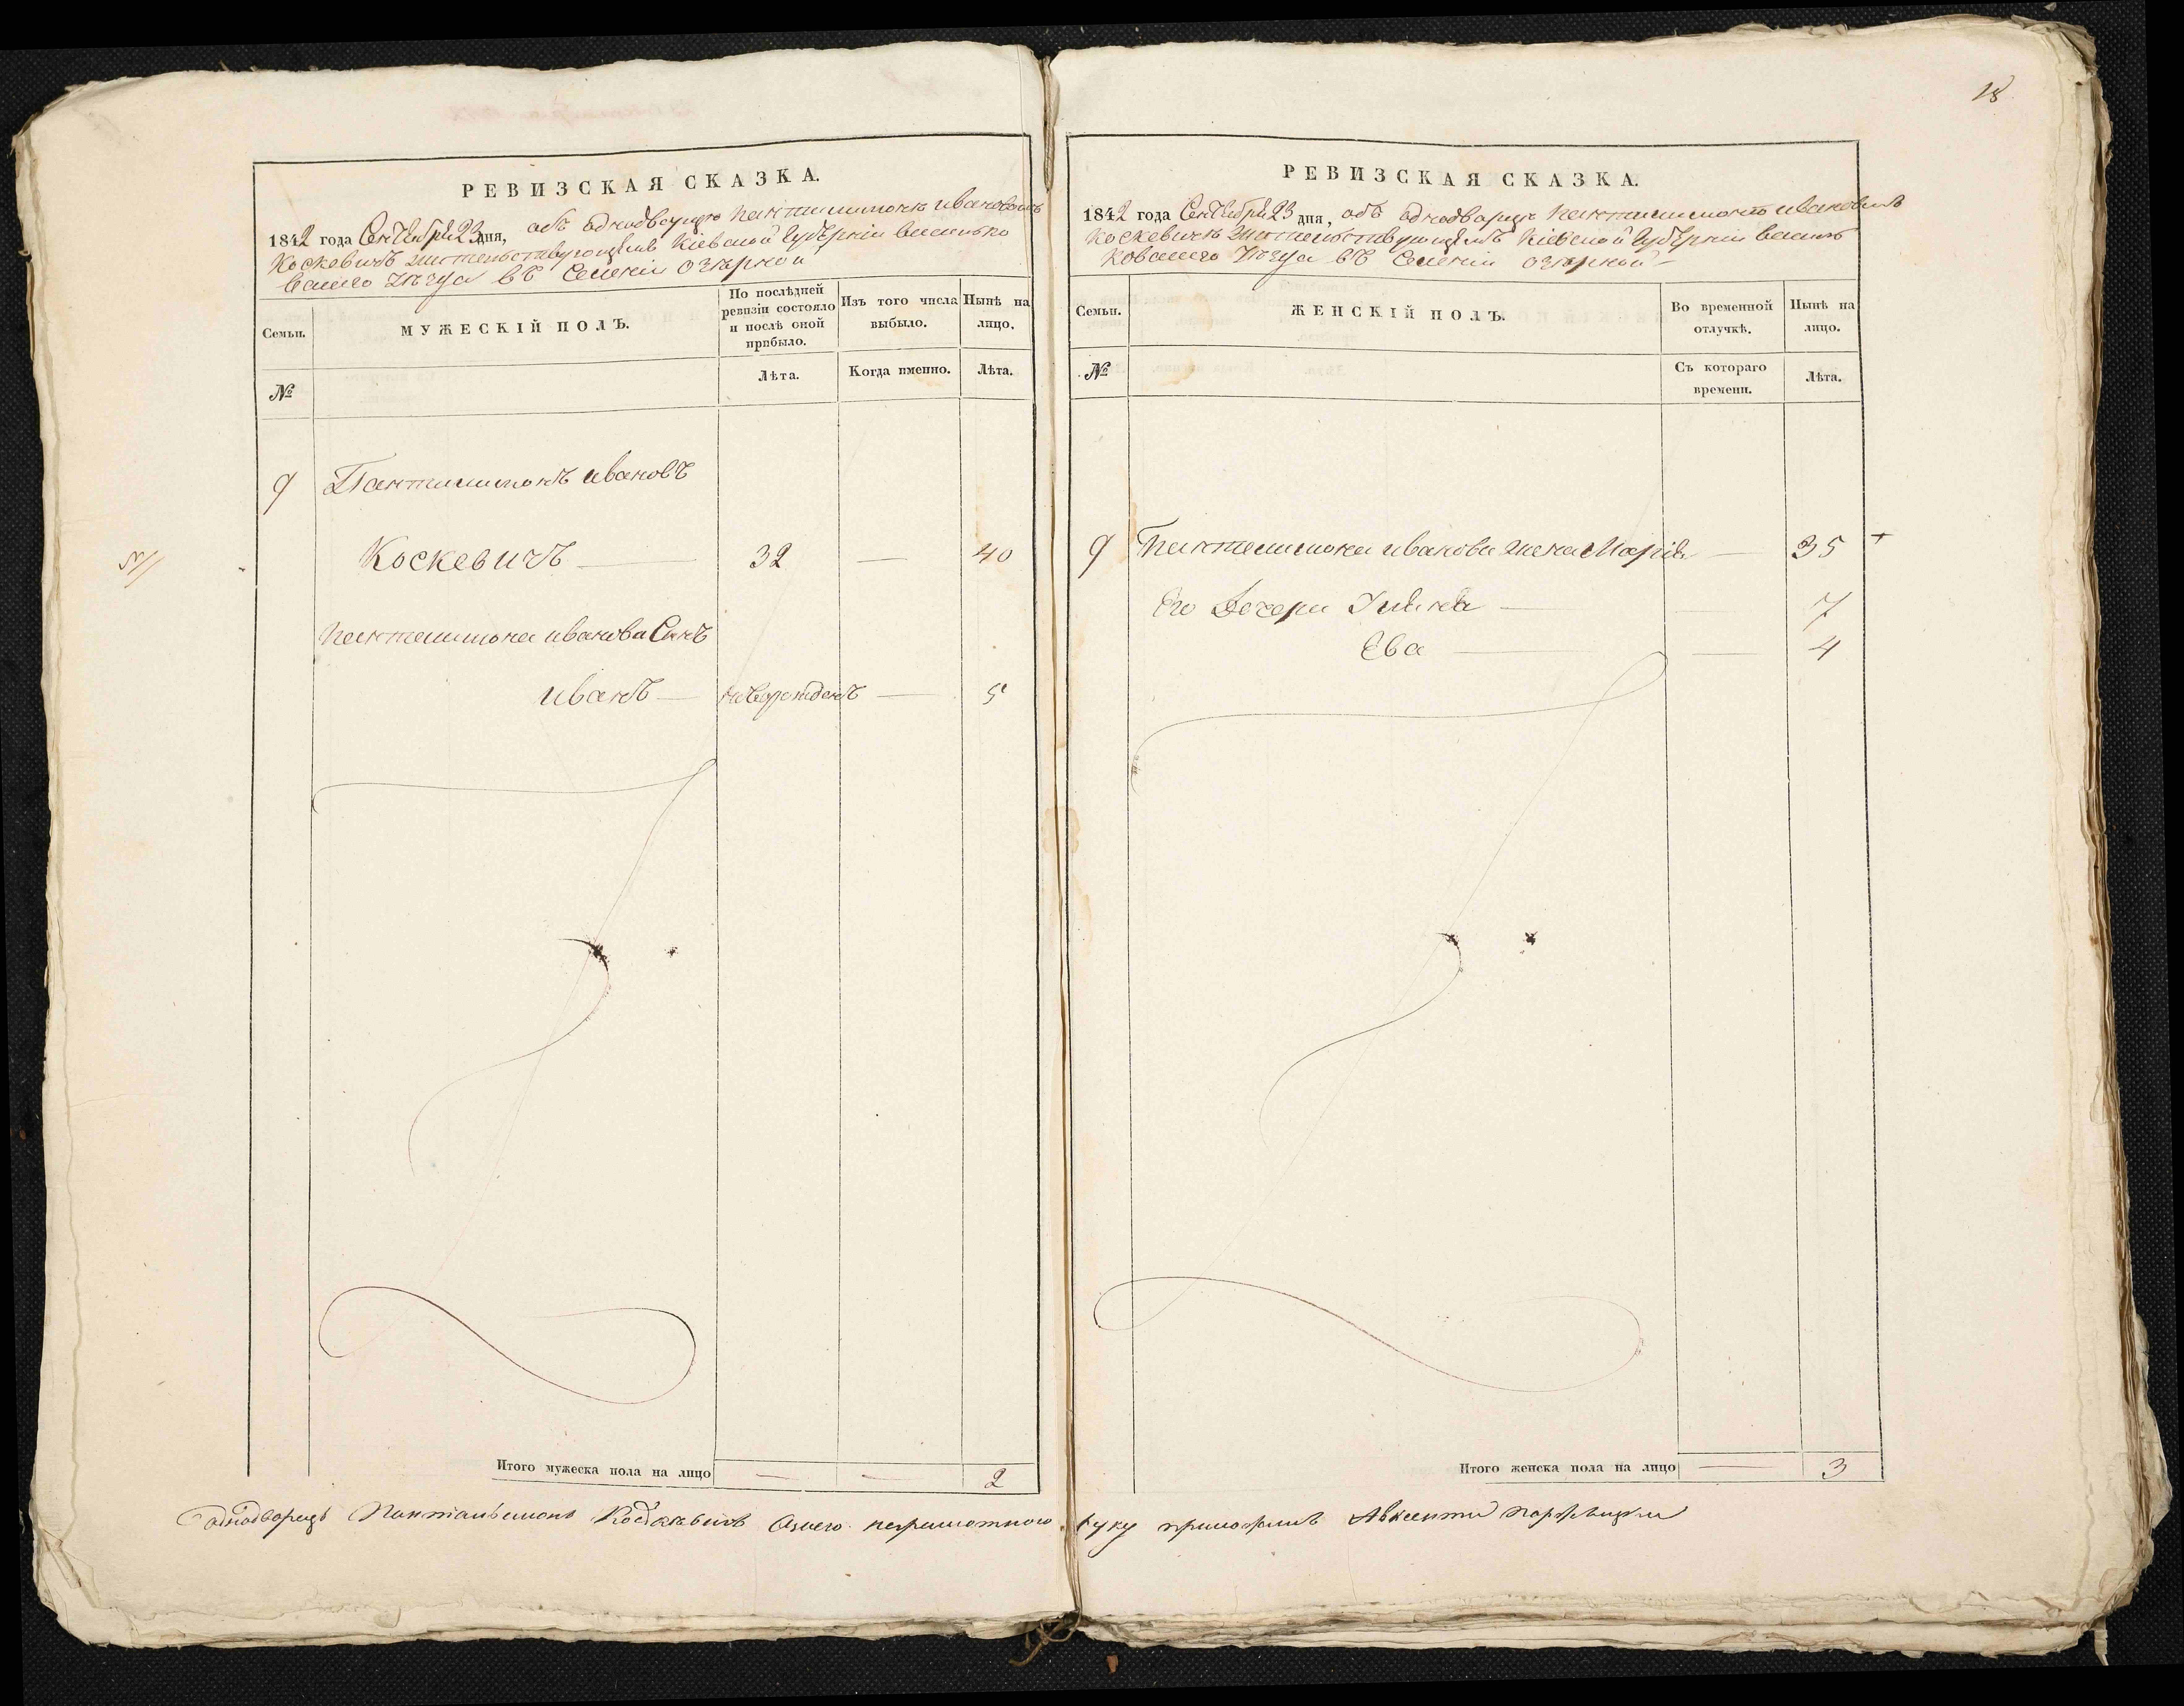 18
РЕВИЗСКАЯ СКАЗКА.
1842 года Сентября 23 дня, объ однодворце Пантилимоне Ивановомъ
Коскевичъ жительствующемъ Кіевской Губерніи Василько
вского уезда въ Селеніи Озерной
Семьи.
МУЖЕСКІЙ ПОЛЪ.
По послѣдней ревизіи состояло и послѣ оной прибыло.
Изъ того числа выбыло.
Нынѣ на лицо.
№
Лѣта.
Когда именно.
Лѣта.
9 Пантилимонъ Ивановъ
Коскевичъ — 32 — 40
Пантелимона Иванова Сынъ
Иванъ — новорожденъ — 5
Итого мужеска пола на лицо — — 2
РЕВИЗСКАЯ СКАЗКА.
1842 года Сентября 23 дня, объ однодворце Пантилимоне Ивановомъ
Коскевиче жительствующемъ Кіевской Губерніи Василь
ковского уезда въ Селеніи Озерной
Семьи.
ЖЕНСКІЙ ПОЛЪ.
Во временной отлучкѣ.
Нынѣ на лицо.
№
Съ котораго времени.
Лѣта.
9 Пантелимона Иванова жена Марія — 35 +
Его Дочери — — 7
Ева — — 4
Итого женска пола на лицо — 3
Однодворецъ Пантальимонъ Коскевичъ Азнего неграмотного руку приложилъ Авксенти